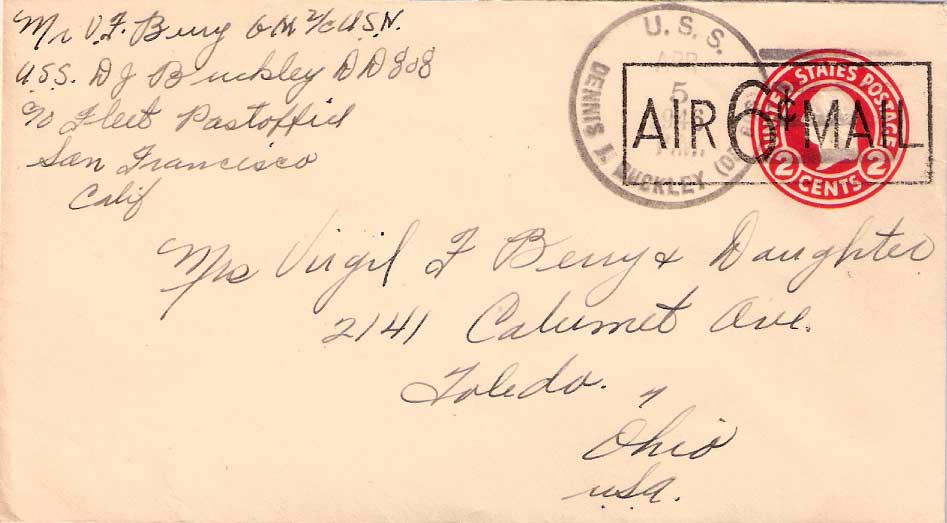 Mr V. F. Berry GM 2/c U.S.N.
U.S.S. D J Buckley DD 808
c/o Fleet Postoffice
San Francisco
Calif
U. S. S.
APR
5
DENNIS J. BUCKLEY
AIR 6¢ MAIL
UNITED STATES POSTAGE
2 CENTS 2
Mrs Virgil F Berry & Daughter
2141 Calumet Ave.
Toledo.
Ohio
U.S.A.